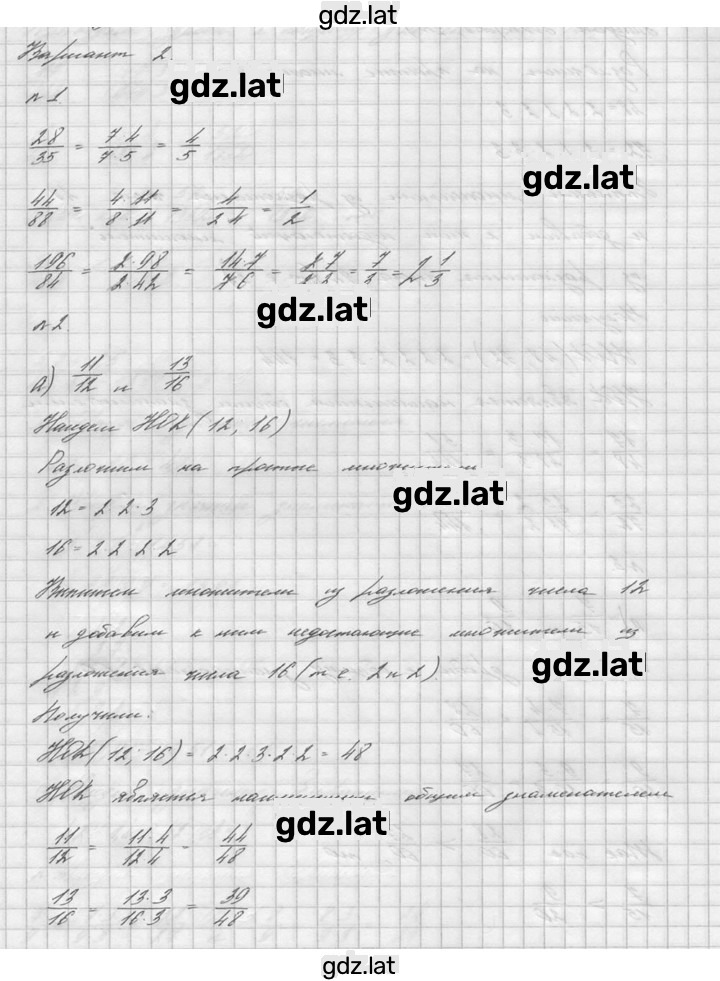 gdz.lat
Вариант 2.
gdz.lat
№1.
28/35 = 7·4/7·5 = 4/5
gdz.lat
44/88 = 4·11/8·11 = 4/2·4 = 1/2
196/84 = 2·98/2·42 = 14·7/7·6 = 2·7/2·2 = 7/3 = 2 1/3
gdz.lat
№2.
а) 11/12 и 13/16
Найдем НОК(12; 16)
Разложим на простые множители
gdz.lat
12 = 2 2·3
16 = 2 2 2 2
Выпишем множители из разложения числа 12
и добавим к ним недостающие множители из
gdz.lat
разложения числа 16 (т е. 2 и 2).
Получили:
НОК(12; 16) = 2·2·3·2 2 = 48
НОК является общим знаменателем
gdz.lat
11/12 = 11·4/12·4 = 44/48
13/16 = 13·3/16·3 = 39/48
gdz.lat